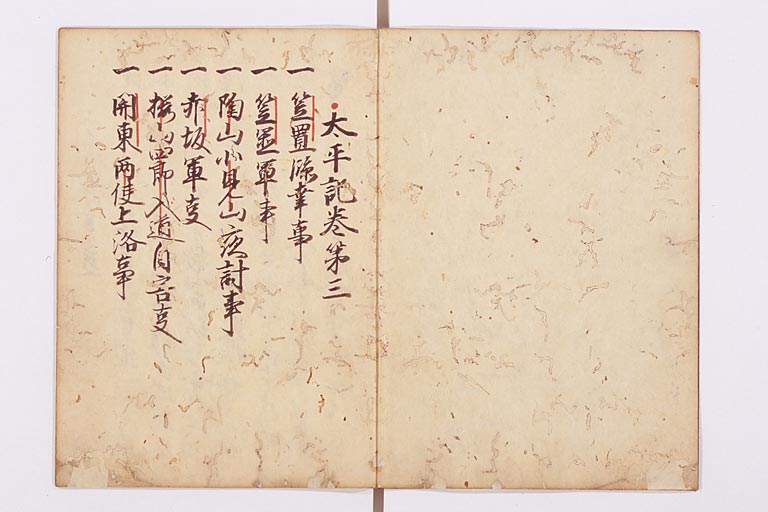 太平記巻第三
一 笠置臨幸事
一 笠置軍事
一 陶山小見山夜討事
一 赤坂軍事
一 桜山四郎入道自害事
一 関東両使上洛事